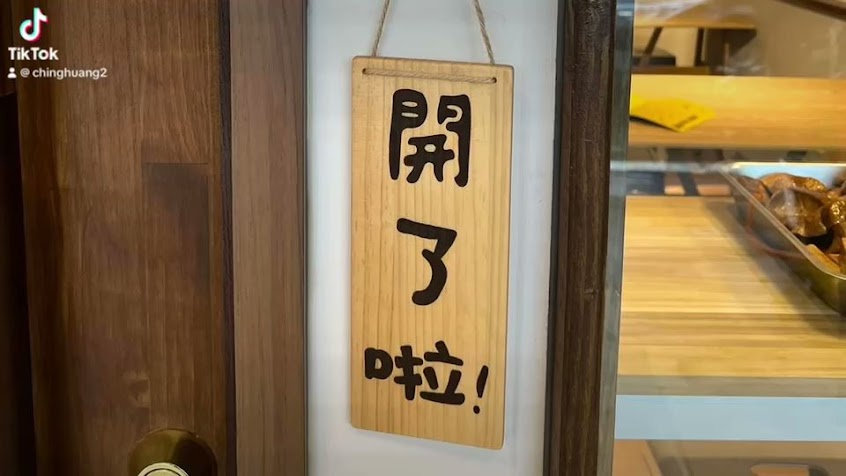 TikTok
@chinghuang2
開
了
啦!